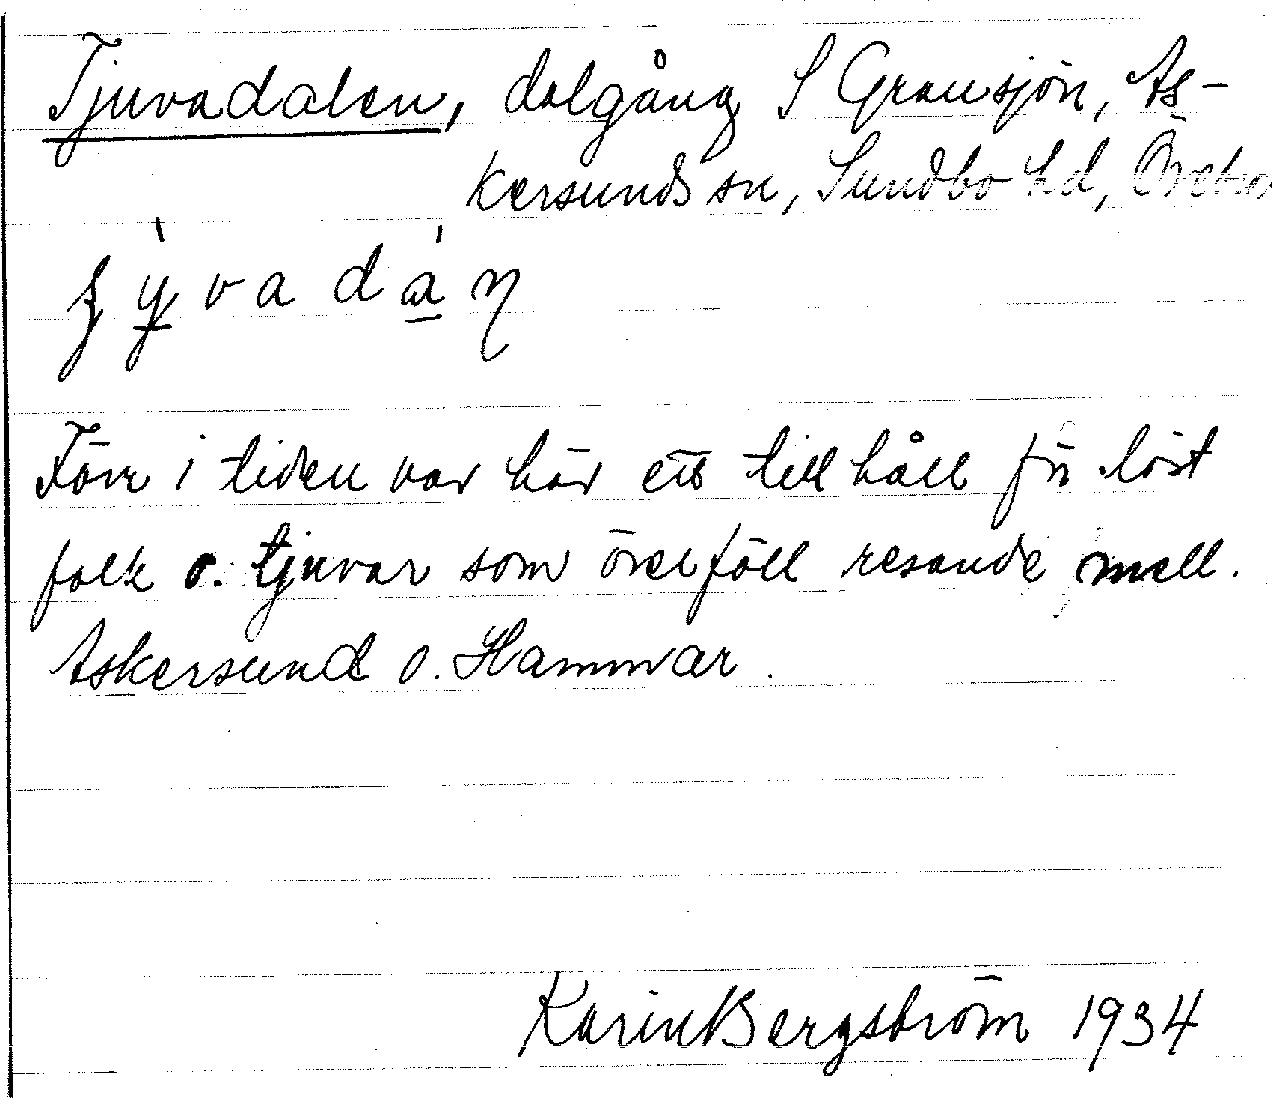 Tjuvadalen, dalgång S Gransjön, As-
kersunds sn, Sundbo hd, Örebro
Förr i tiden var här ett tillhåll för löst
folk o. tjuvar som överföll resande mell.
Askersund o. Hammar.
Karin Bergström 1934